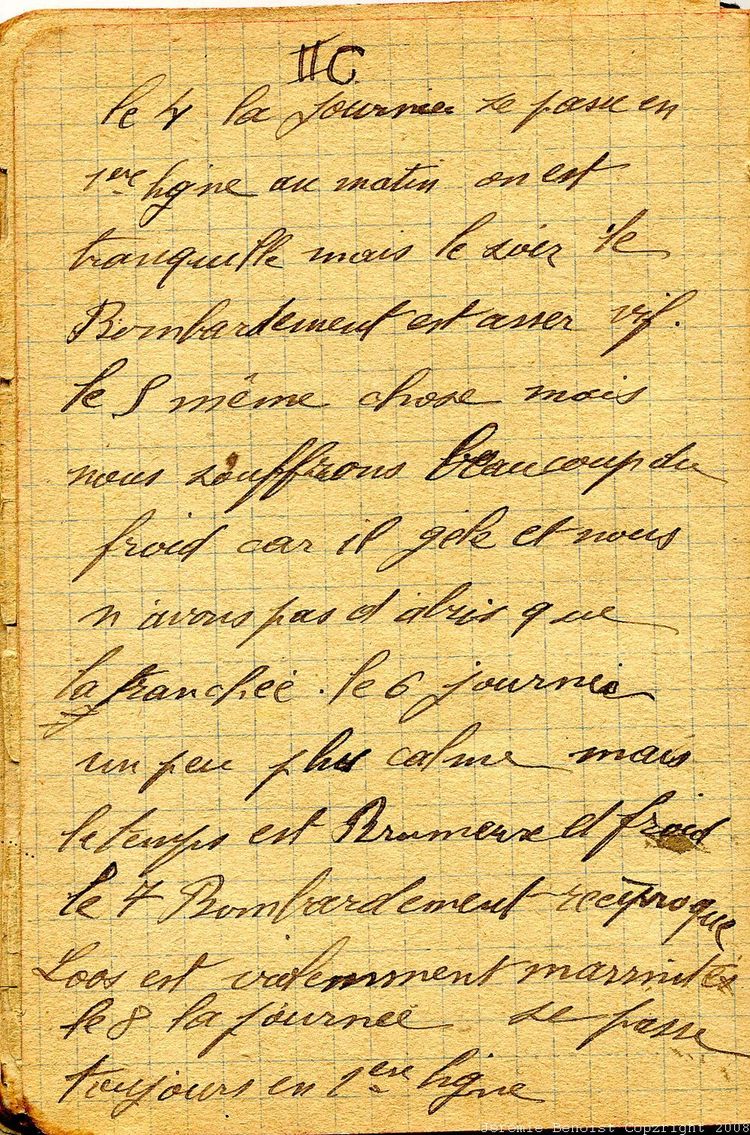 II C
le 4 la journee se passe en
1ere ligne au matin on est
tranquille mais le soir le
Bombardement est asser vif.
le 5 même chose mais
nous souffrons beaucoup du
froid car il gèle et nous
n'avons pas d'abris que
la tranchée. le 6 journée
un peu plus calme mais
le temps est Brumeux et froid
le 7 Bombardement reciproque
Loos est violemment marmitée
le 8 la journée se passe
toujours en 1ere ligne
Jeremie Benoist Copyright 2008